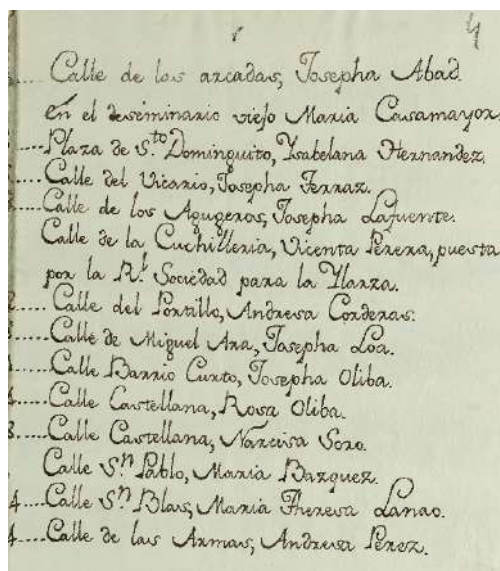 4
Calle de las arcadas, Josepha Abad.
en el deseminario viejo Maria Casamayor.
Plaza de S.to Dominguito, Ysabelana Hernandez.
Calle del Vicario, Josepha Ferraz.
Calle de los Agugeros, Josepha Lafuente.
Calle de la Cuchilleria, Vicenta Perera, puesta
por la R.l Sociedad para la
2....Calle del Portillo, Andresa Corderas.
Calle de Miguel Ara, Josepha Loa.
Calle Barrio Curto, Josepha Oliba.
4....Calle Castellana, Rosa Oliba.
3....Calle Castellana, Narcisa Soro.
Calle S.n Pablo, Maria Bazquez.
4....Calle S.n Blas, Maria Theresa Lanao.
4....Calle de las Armas, Andresa Perez.